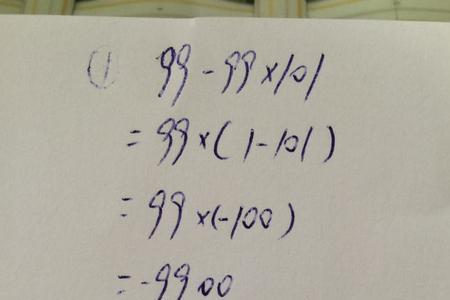 ① 99-99×101
=99×(1-101)
=99×(-100)
=-9900